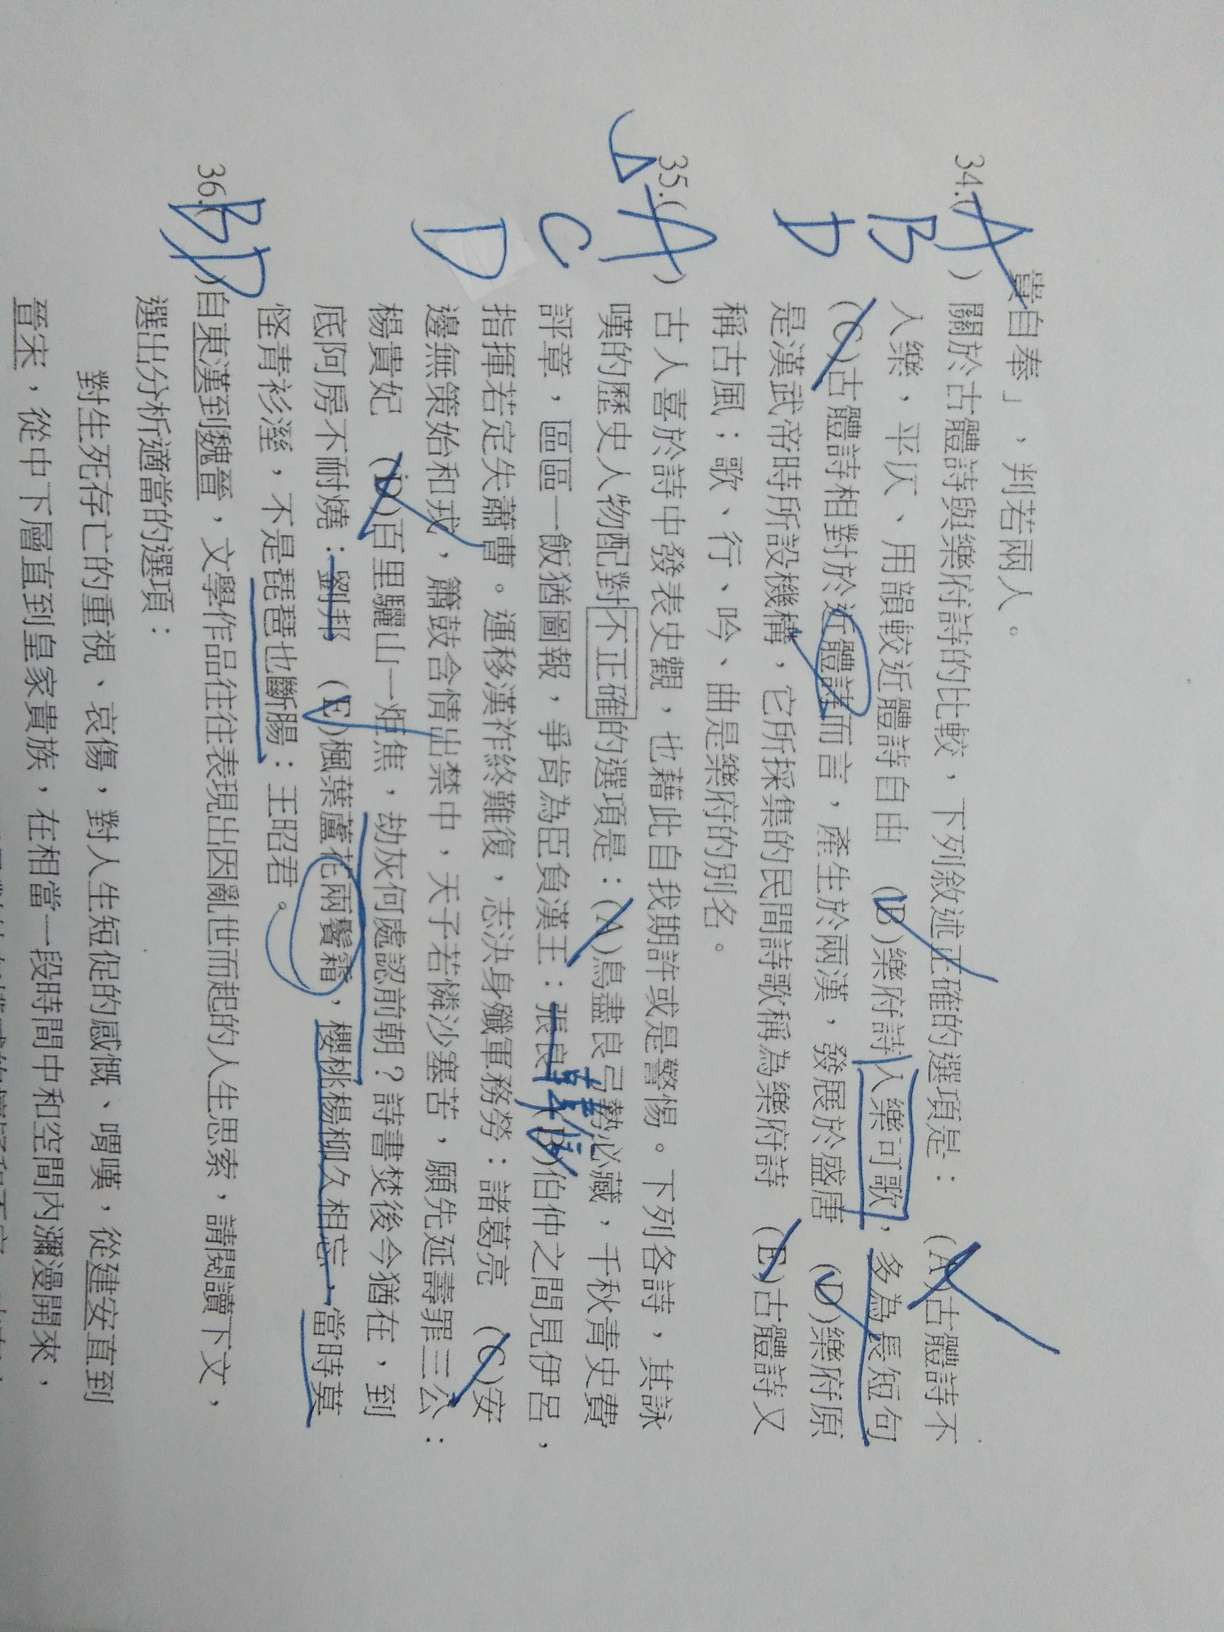 貴自奉」，判若兩人。
34.(A) 關於古體詩與樂府詩的比較，下列敘述正確的選項是：(A)古體詩不
B 入樂，平仄、用韻較近體詩自由 (B)樂府詩入樂可歌，多為長短句
(C)古體詩相對於近體詩而言，產生於兩漢，發展於盛唐 (D)樂府原
D 是漢武帝時所設機構，它所採集的民間詩歌稱為樂府詩 (E)古體詩又
稱古風；歌、行、吟、曲是樂府的別名。
35.(A) 古人喜於詩中發表史觀，也藉此自我期許或是警惕。下列各詩，其詠
嘆的歷史人物配對不正確的選項是：(A)鳥盡良弓勢必藏，千秋青史費
C 評章，區區一飯猶圖報，爭肯為臣負漢王：張良 韓信 (B)伯仲之間見伊呂，
指揮若定失蕭曹。運移漢祚終難復，志決身殲軍務勞：諸葛亮 (C)安
D 邊無策始和戎，簫鼓含情出禁中，天子若憐沙塞苦，願先延壽罪三公：
楊貴妃 (D)百里驪山一炬焦，劫灰何處認前朝？詩書焚後今猶在，到
底阿房不耐燒：劉邦 (E)楓葉蘆花兩鬢霜，櫻桃楊柳久相忘，當時莫
怪青衫溼，不是琵琶也斷腸：王昭君。
36.(BD)自東漢到魏晉，文學作品往往表現出因亂世而起的人生思索，請閱讀下文，
選出分析適當的選項：
對生死存亡的重視、哀傷，對人生短促的感慨、喟嘆，從建安直到
晉宋，從中下層直到皇家貴族，在相當一段時間中和空間內瀰漫開來，